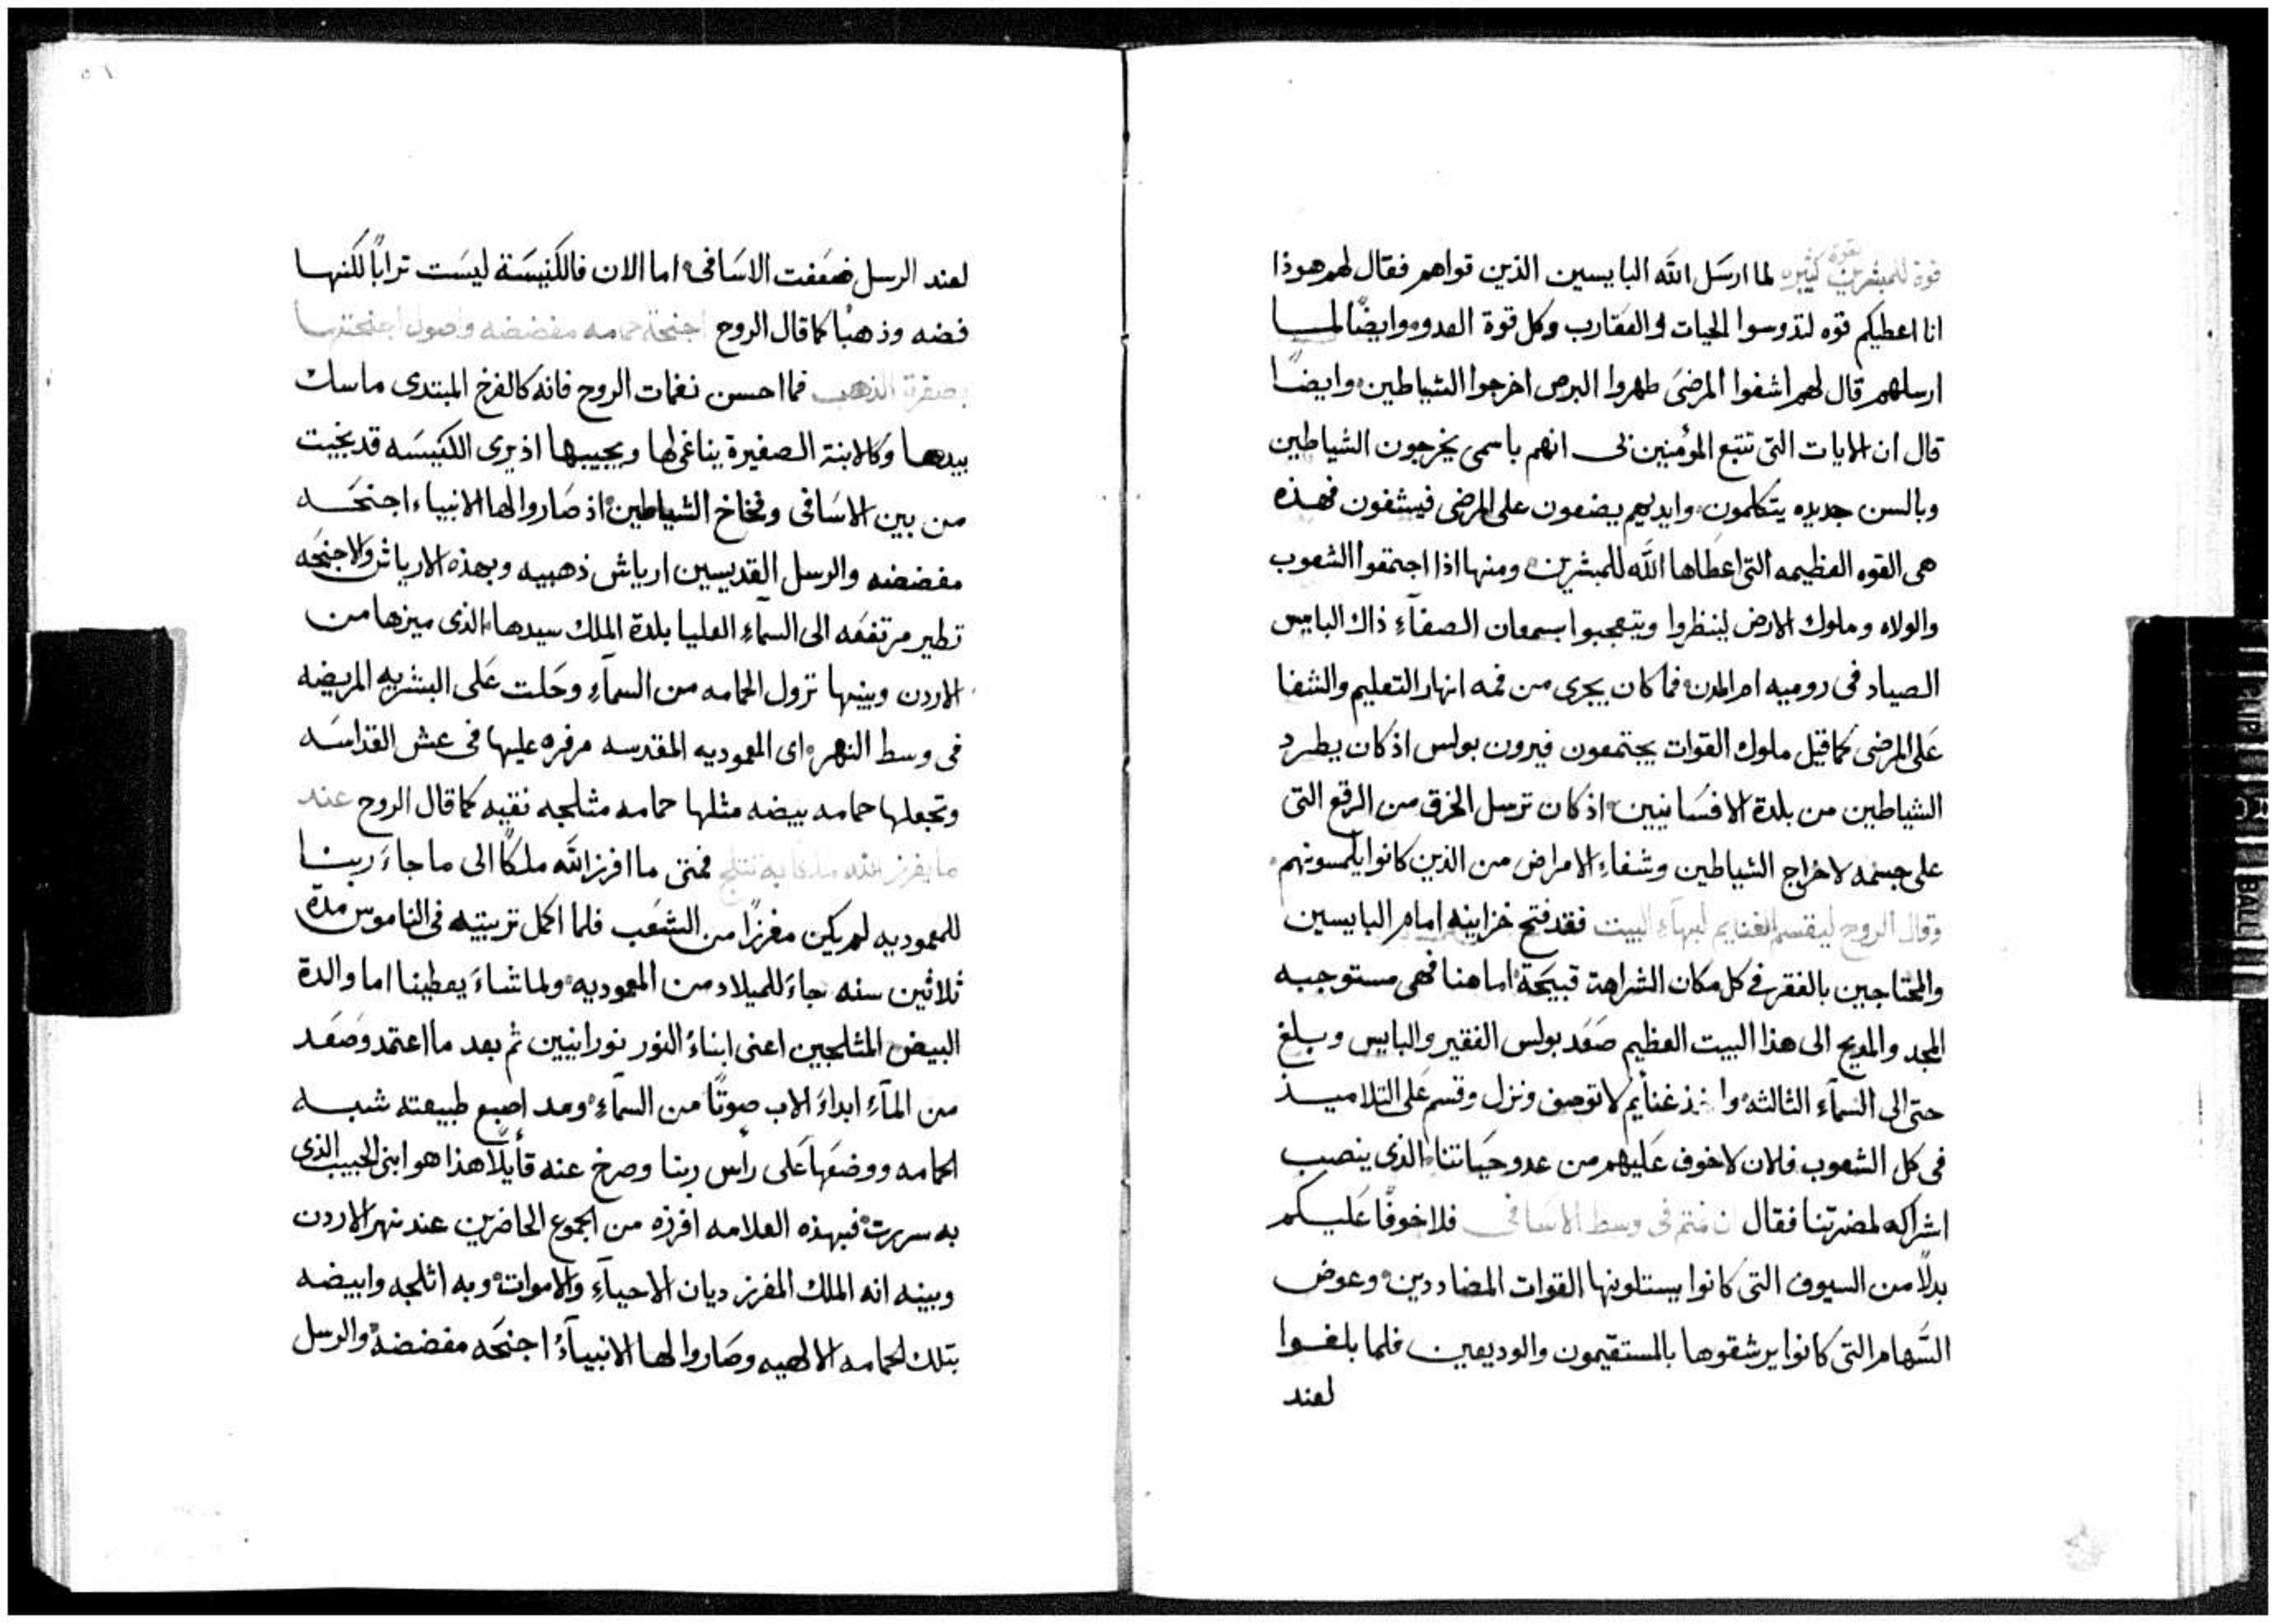 قوة للمبشرين بقوة كثيره لما ارسَل الله البايسين الذين قواهم فقال لهم هوذا
انا اعطيكم قوه لتدوسوا الحيات والعقارب وكل قوة العدو وايضًا لمـا
ارسلهم قال لهم اشفوا المرضىَ طهروا البرص اخرجوا الشياطين وايضًا
قال ان الايات التى تتبع المؤمنين بى انهم باسمى يخرجون الشياطين
وبالسن جديده يتكلمون وايديهم يضعون على المرضى فيشفون فهذه
هى القوه العظيمه التى اعطاها الله للمبشرين ومنها اذا اجتمعوا الشعوب
والولاه وملوك الارض لينظروا ويتعجبوا بسمعان الصفآءِ ذاك البايس
الصياد فى روميه ام المدن فما كان يجرى من فمه انهار التعليم والشفا
عَلى المرضى كما قيل ملوك القوات يجتمعون فيرون بولس اذ كان يطرد
الشياطين من بلدة الافسَانيين اذ كان ترسل الخرق من الرقع التى
على جسَمه لاخراج الشياطين وشفاءِ الامراض من الذين كانوا يلمسونهم
وقال الروح ليقسم الغنايم لبهآءِ البيت فقد فتح خزاينه امام البايسين
والمحتاجين بالفقر فى كل مكان الشراهة قبيَحة اما هنا فهى مستوجبه
المجد والمديح الى هذا البيت العظيم صَعَد بولس الفقير والبايس وبلغ
حتى الى السمآءِ الثالثه واخذ غنايم لا توصف ونزل وقسم عَلى التلاميذ
فى كل الشعوب فلان لا خوف عَليهم من عدو حَياتنا الذى ينصب
اشراكه لمضرتنا فقال ان نمتم فى وسط الاسَافى فلا خوفًا عَليكم
بدلًا من السيوف التى كانوا يستلونها القوات المضاددين وعوض
السَّهام التى كانوا يرشقوها بالمستقيمون والوديعين فلما بلغوا
لعند
لعند الرسل ضعَفت الاسَافى اما الان فالكنيسَة ليسَت ترابًا لكنها
فضه وذهبًا كما قال الروح اجنحة حمامه مفضضه واصول اجنحتها
بصفرة الذهب فما احسن نغمات الروح فانه كالفرخ المبتدى ماسك
بيدها وكالابنة الصغيرة يناغى لها ويجيبها اذ يرى الكنيسَه قد نجيت
من بين الاسَافى وفخاخ الشياطين اذ صَاروا لها الانبياء اجنحَه
مفضضه والرسل القديسين ارياش ذهبيه وبهذه الارياش والاجنحَه
تطير مرتفعَه الى السمآءِ العليا بلدة الملك سيدها الذى ميزها من
الاردن وبينها نزول الحمامه من السمآءِ وحَلت عَلى البشريه المريضه
فى وسط النهر اى المعموديه المقدسه مرفره عليها فى عش القداسَه
وتجعلها حمامه بيضه مثلها حمامه مثلجه نقيه كما قال الروح عند
ما يفرز الله ملكًا به تتلج فمتى ما افرز الله ملكًا الى ما جاءَ ربنا
للمعموديه لم يكن مفرزًا من الشعَب فلما اكمل تربيته فى الناموس مدة
ثلاثين سنه جاءَ للميلاد من المعموديه ولما شاءَ يعطينا اما والدة
البيض المثلجين اعنى ابناءُ النور نورانيين ثم بعد ما اعتمد وصَعَد
من المآءِ ابداءَ الاب صوتًا من السمآءِ ومد اصبع طبيعته شبه
الحمامه ووضعَها عَلى رأس ربنا وصرخ عنه قأيلًا هذا هو ابنى الحبيب الذى
به سررت فبهذه العلامه افرزه من الجموع الحاضرين عند نهر الاردن
وبينه انه الملك المفرز ديان الاحيآءِ والاموات وبه اثلجه وابيضه
بتلك الحمامه الالهيه وصَاروا لها الانبيآءُ اجنحَه مفضضه والرسل